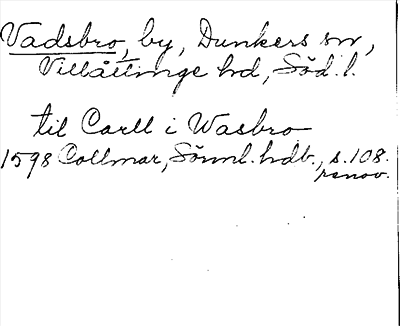 Vadsbro, by, Dunkers sn,
Villåttinge hd, Söd. l.
til Carll i Wasbro
1598 Collmar, Sörml. hdb., s. 108.
renov.